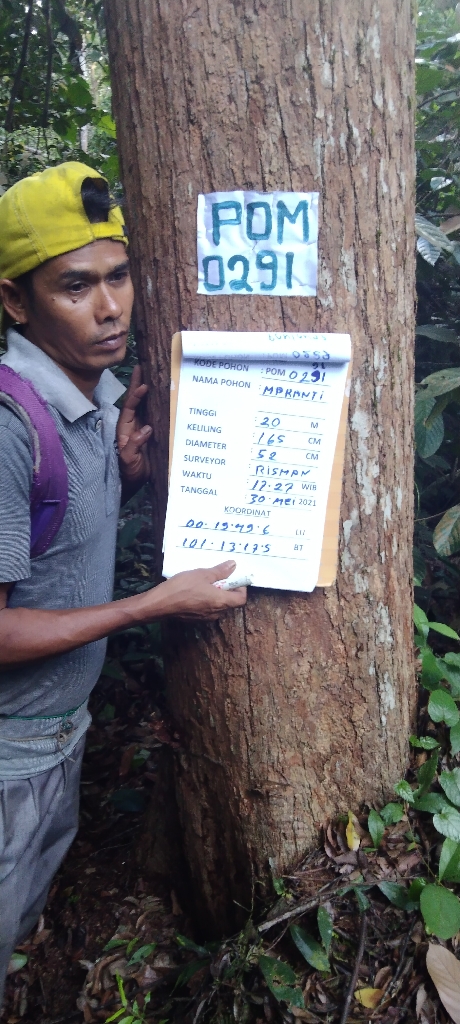 POM
0291
KODE POHON : POM 0291
NAMA POHON : MARANTI
TINGGI : 20 M
KELILING : 165 CM
DIAMETER : 52 CM
SURVEYOR : RISMAN
WAKTU : 17.27 WIB
TANGGAL : 30 MEI 2021
KOORDINAT
00.19.49.6 LU
101.13.17.5 BT